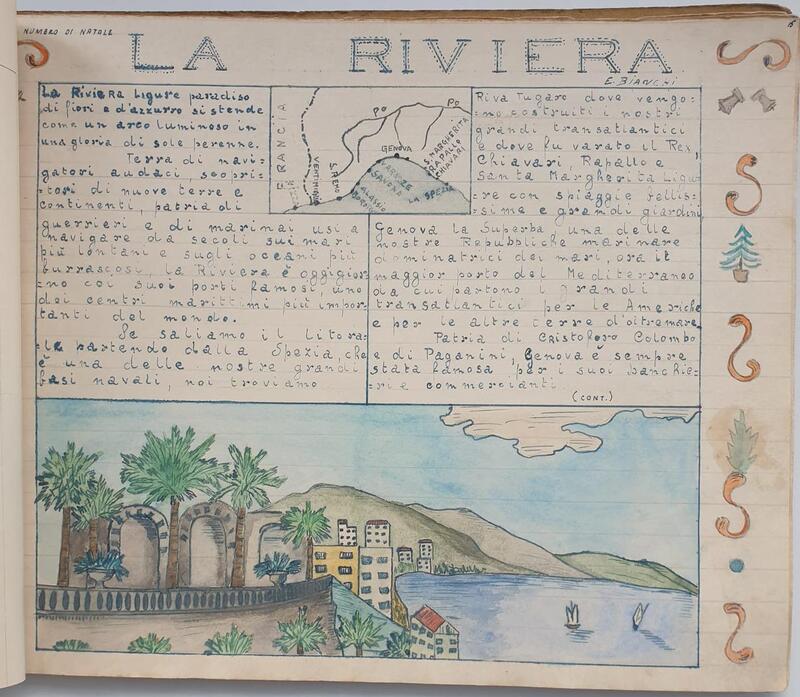 NUMERO DI NATALE
15
LA RIVIERA
E. BIANCHI
La Riviera Ligure paradiso
di fiori e d'azzurro si stende
come un arco luminoso in
una gloria di sole perenne.
Terra di navi=
gatori audaci, scopri=
tori di nuove terre e
continenti, patria di
guerrieri e di marinai usi a
navigare da secoli sui mari
più lontani e sugli oceani più
burrascosi, la Riviera è oggigior=
=no coi suoi porti famosi, uno
dei centri marittimi più impor=
tanti del mondo.
Se saliamo il litora=
=le partendo dalla Spezia, che
è una delle nostre grandi
basi navali, noi troviamo
FRANCIA
VENTIMIGLIA
S. REMO
PO
PO
GENOVA
S. MARGHERITA
RAPALLO
CHIAVARI
SAVONA
ALASSIO
LA SPEZIA
Riva Tugaro dove vengo=
=no costruiti i nostri
grandi transatlantici
e dove fu varato il Rex,
Chiavari, Rapallo e
Santa Margherita Ligu=
=re con spiaggie bellis=
=sime e grandi giardini,
Genova la Superba una delle
nostre Repubbliche marinare
dominatrici dei mari, ora il
maggior porto del Mediterraneo
da cui partono i grandi
transatlantici per le Americhe
e per le altre terre d'oltremare.
Patria di Cristoforo Colombo
e di Paganini, Genova è sempre
stata famosa per i suoi banchie=
=ri e commercianti.
(CONT.)